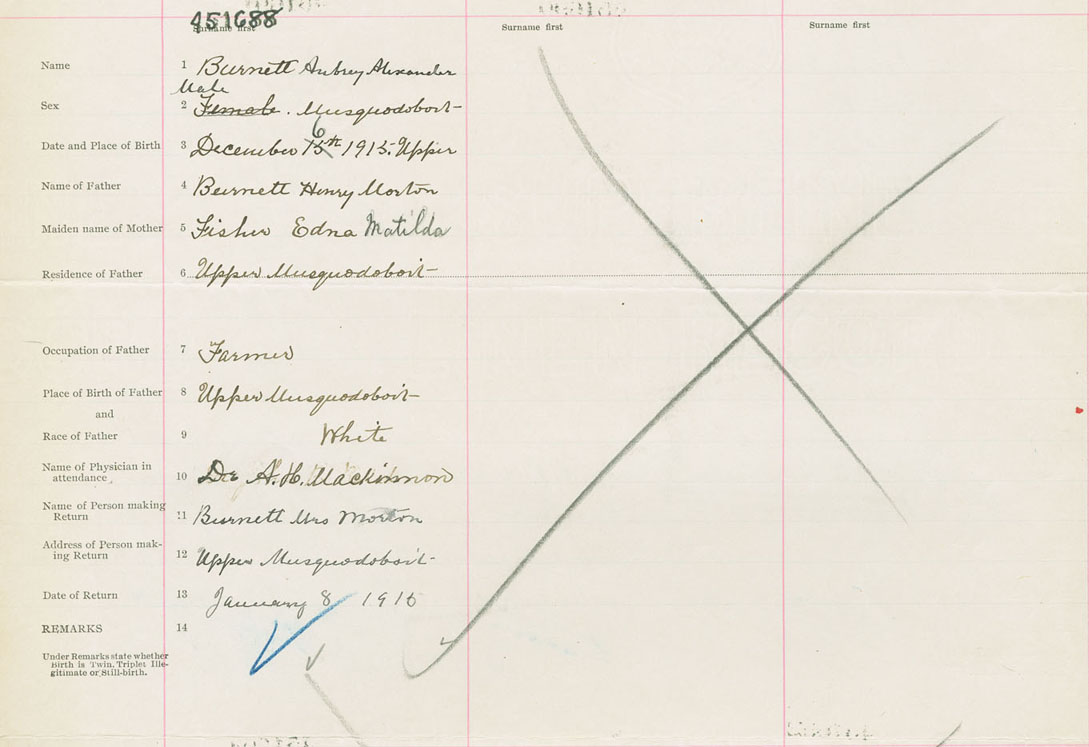 451688
Surname first
Surname first
Surname first
Name 1 Burnett Aubrey Alexander
Male
Sex 2 Female. Musquodoboit
6
Date and Place of Birth 3 December 15th 1915. Upper
Name of Father 4 Burnett Henry Morton
Maiden name of Mother 5 Fisher Edna Matilda
Residence of Father 6 Upper Musquodoboit
Occupation of Father 7 Farmer
Place of Birth of Father 8 Upper Musquodoboit
and
Race of Father 9 White
Name of Physician in
attendance 10 Dr A. H. Mackinnon
Name of Person making
Return 11 Burnett Mrs Morton
Address of Person mak-
ing Return 12 Upper Musquodoboit
Date of Return 13 January 8 1916
REMARKS 14
Under Remarks state whether
Birth is Twin. Triplet Ille-
gitimate or Still-birth.